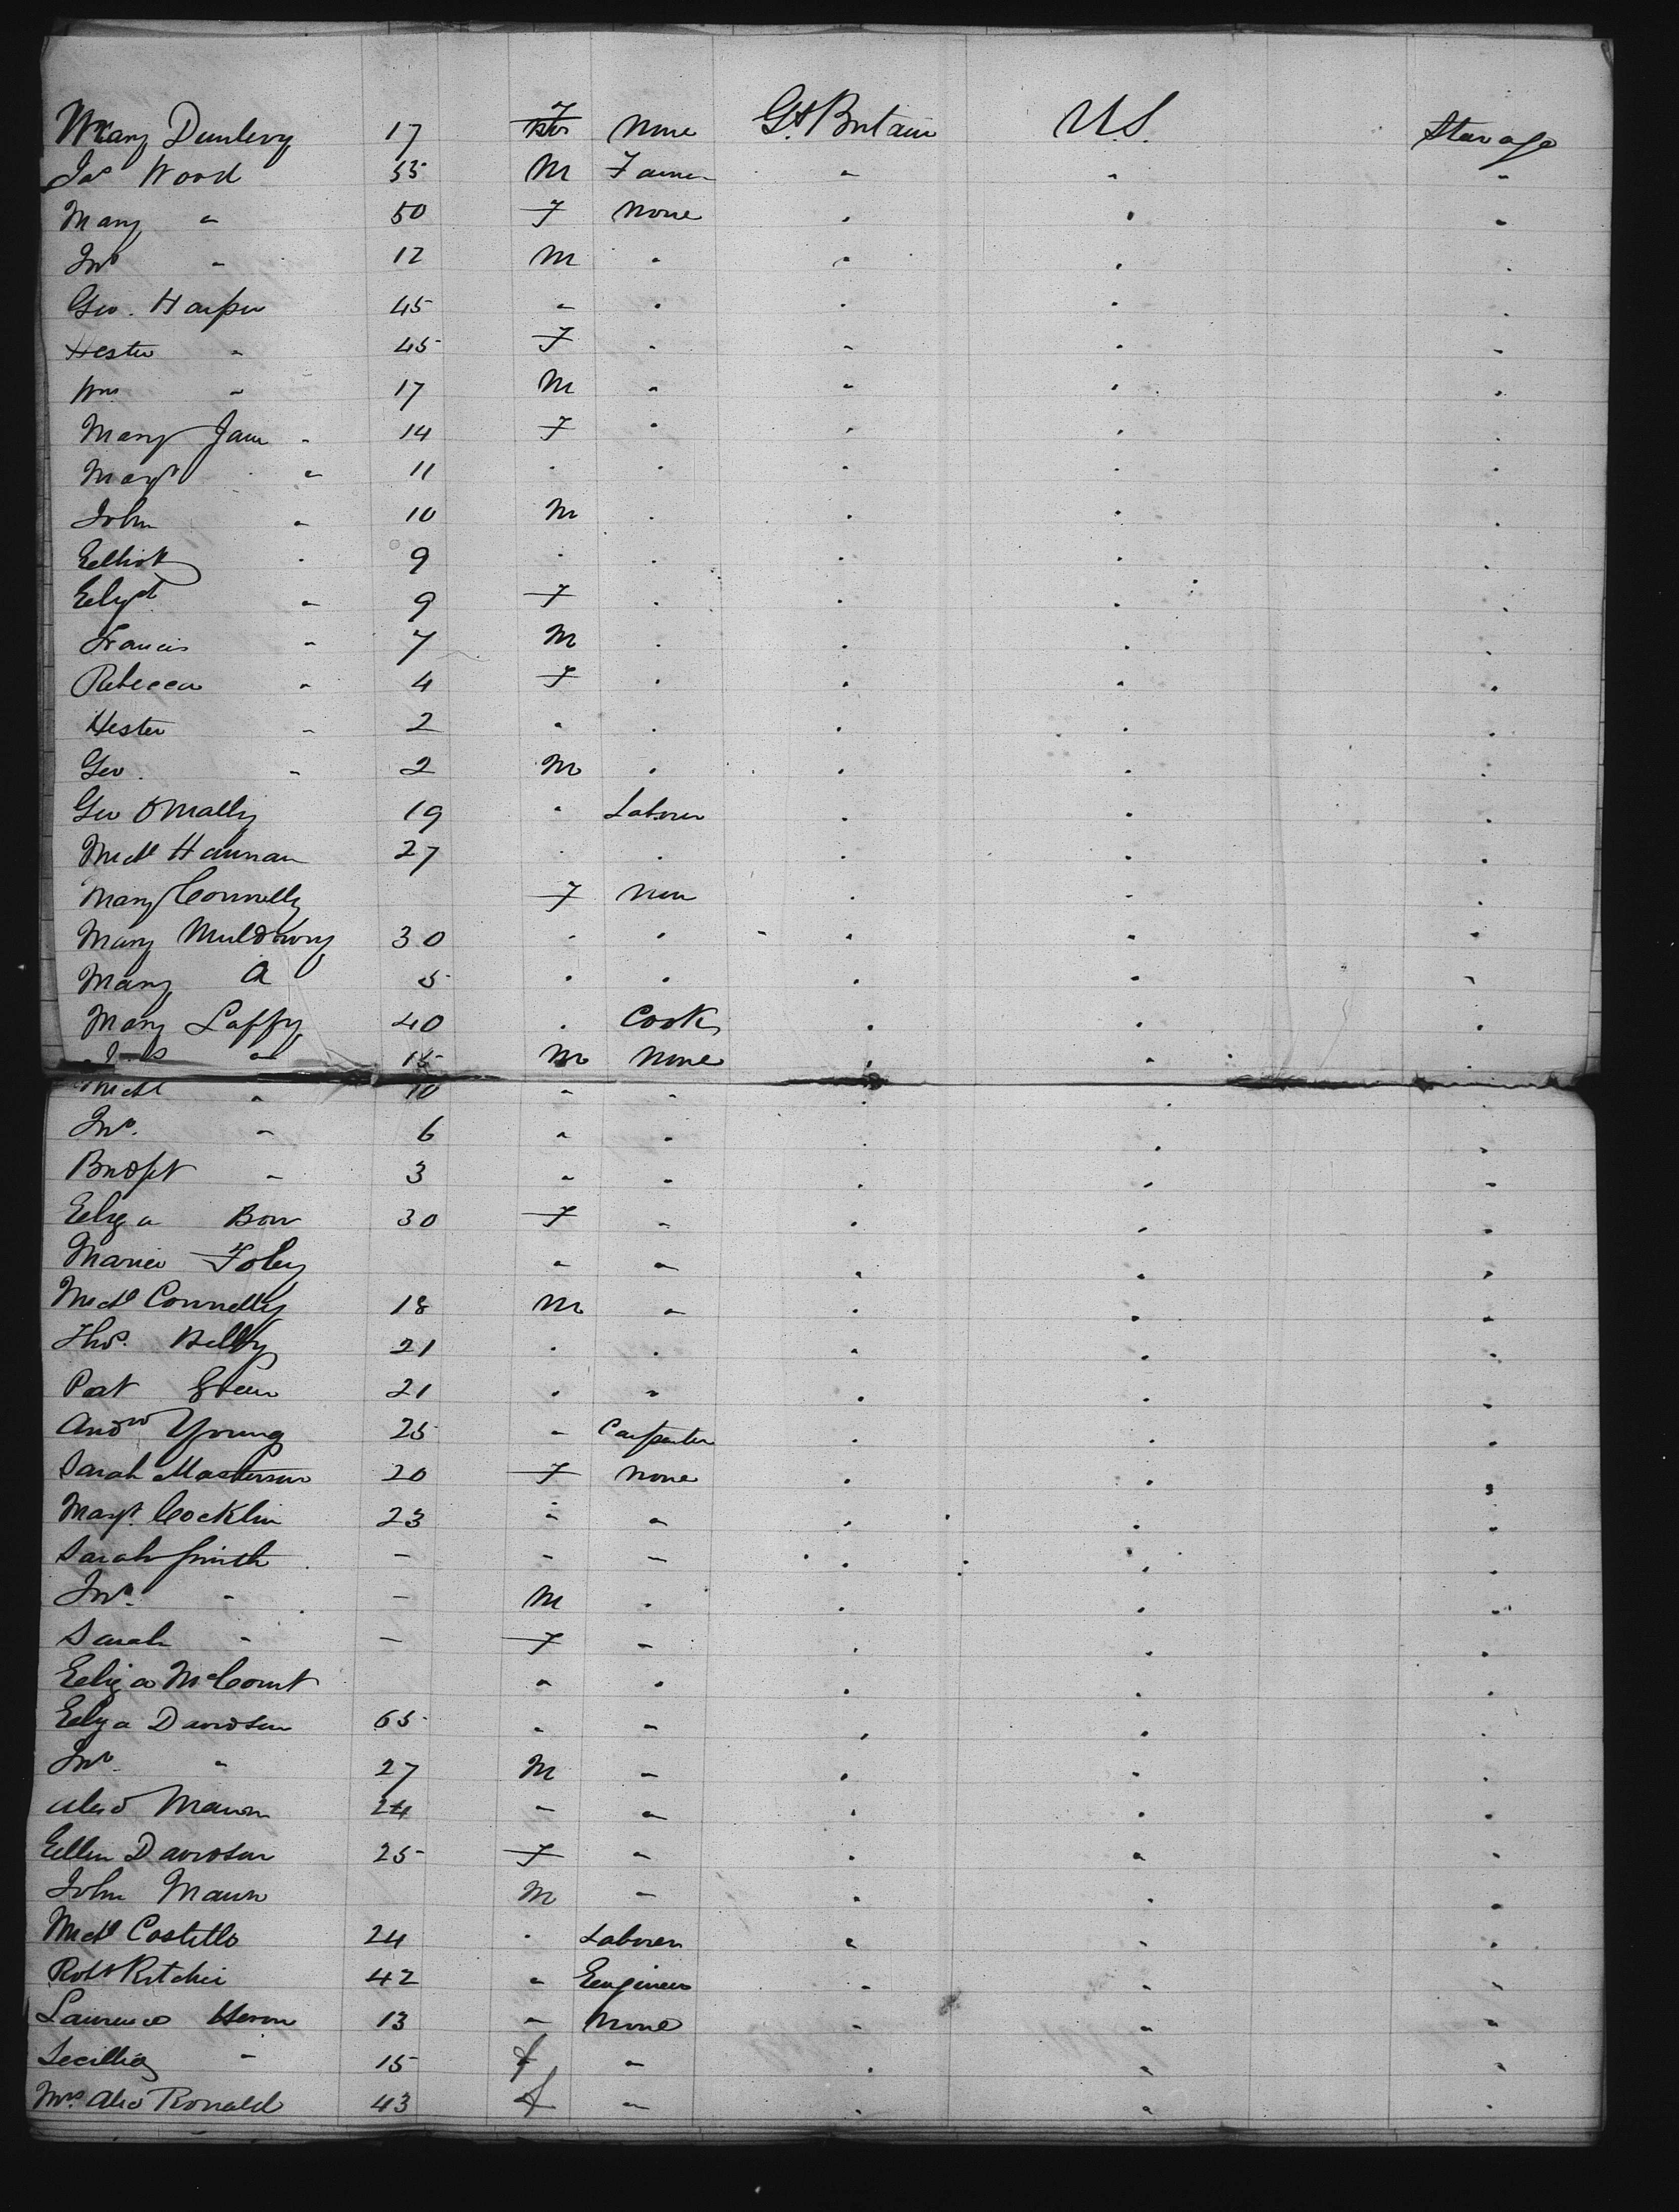 Mary Dunlevy 17 F None Gt Britain U.S. Steerage
Jas Wood 55 M Farmer " " "
Mary " 50 F None " " "
Jno " 12 M " " " "
Geo. Harper 45 " " " " "
Hester " 45 F " " " "
Wm " 17 M " " " "
Mary Jane " 14 F " " " "
Margt " 11 " " " " "
John " 10 M " " " "
Elliott " 9 " " " " "
Elizth " 9 F " " " "
Francis " 7 M " " " "
Rebecca " 4 F " " " "
Hester " 2 " " " " "
Geo. " 2 M " " " "
Geo O'Mally 19 " Laborer " " "
Michl Hannan 27 " " " " "
Mary Connelly F None " " "
Mary Muldowny 30 " " " " "
Mary A 5 " " " " "
Mary Laffy 40 " Cook " " "
" 15 M None " " "
Michl " 10 " " " " "
Jno. " 6 " " " " "
Bridget " 3 " " " " "
Eliza Bow 30 F " " " "
Maria Foley " " " " "
Michl Connelly 18 M " " " "
Thos. 21 " " " " "
Pat Green 21 " " " " "
Andw Young 25 " Carpenter " " "
Sarah Masterson 20 F None " " "
Margt. Cocklin 23 " " " " "
Sarah Smith — " " " " "
Jno. " — M " " " "
Sarah " — F " " " "
Eliza McCourt " " " " "
Eliza Davidson 65 " " " " "
Jno. " 27 M " " " "
Alexd Mann 24 " " " " "
Ellen Davidson 25 F " " " "
John Mann M " " " "
Michl Costello 24 " Laborer " " "
Robt Ritchie 42 " Engineer " " "
Laurence Heron 13 " None " " "
Secillia " 15 f " " " "
Mrs. Alex Ronald 43 f " " " "